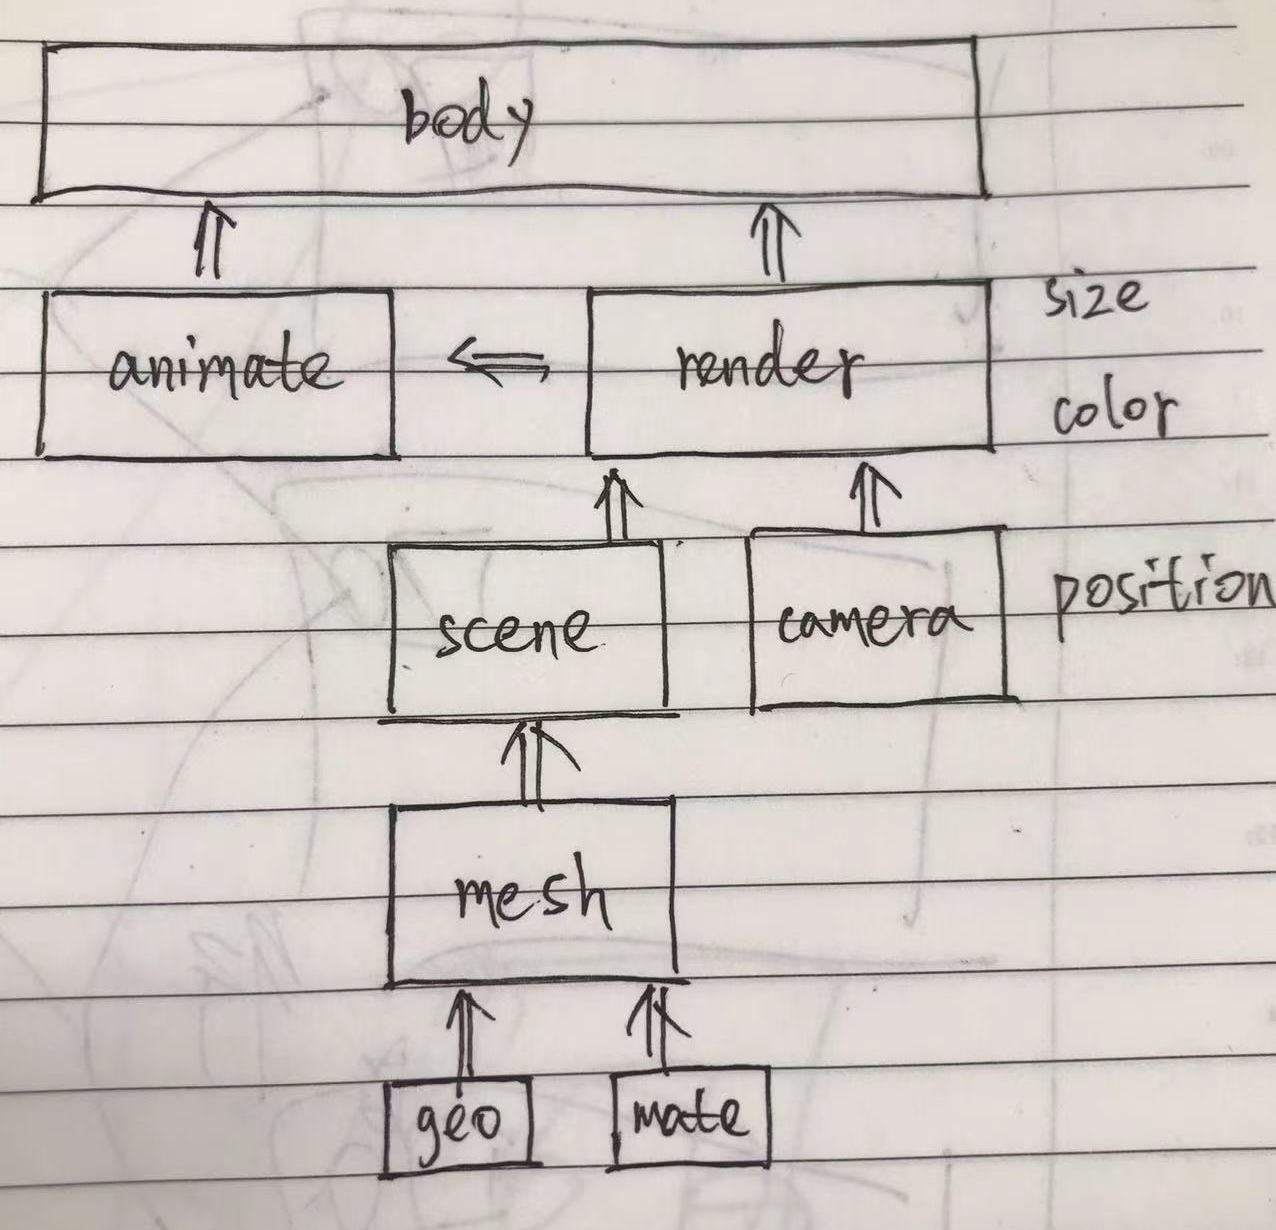 body
animate
render
size
color
scene
camera
position
mesh
geo
mate